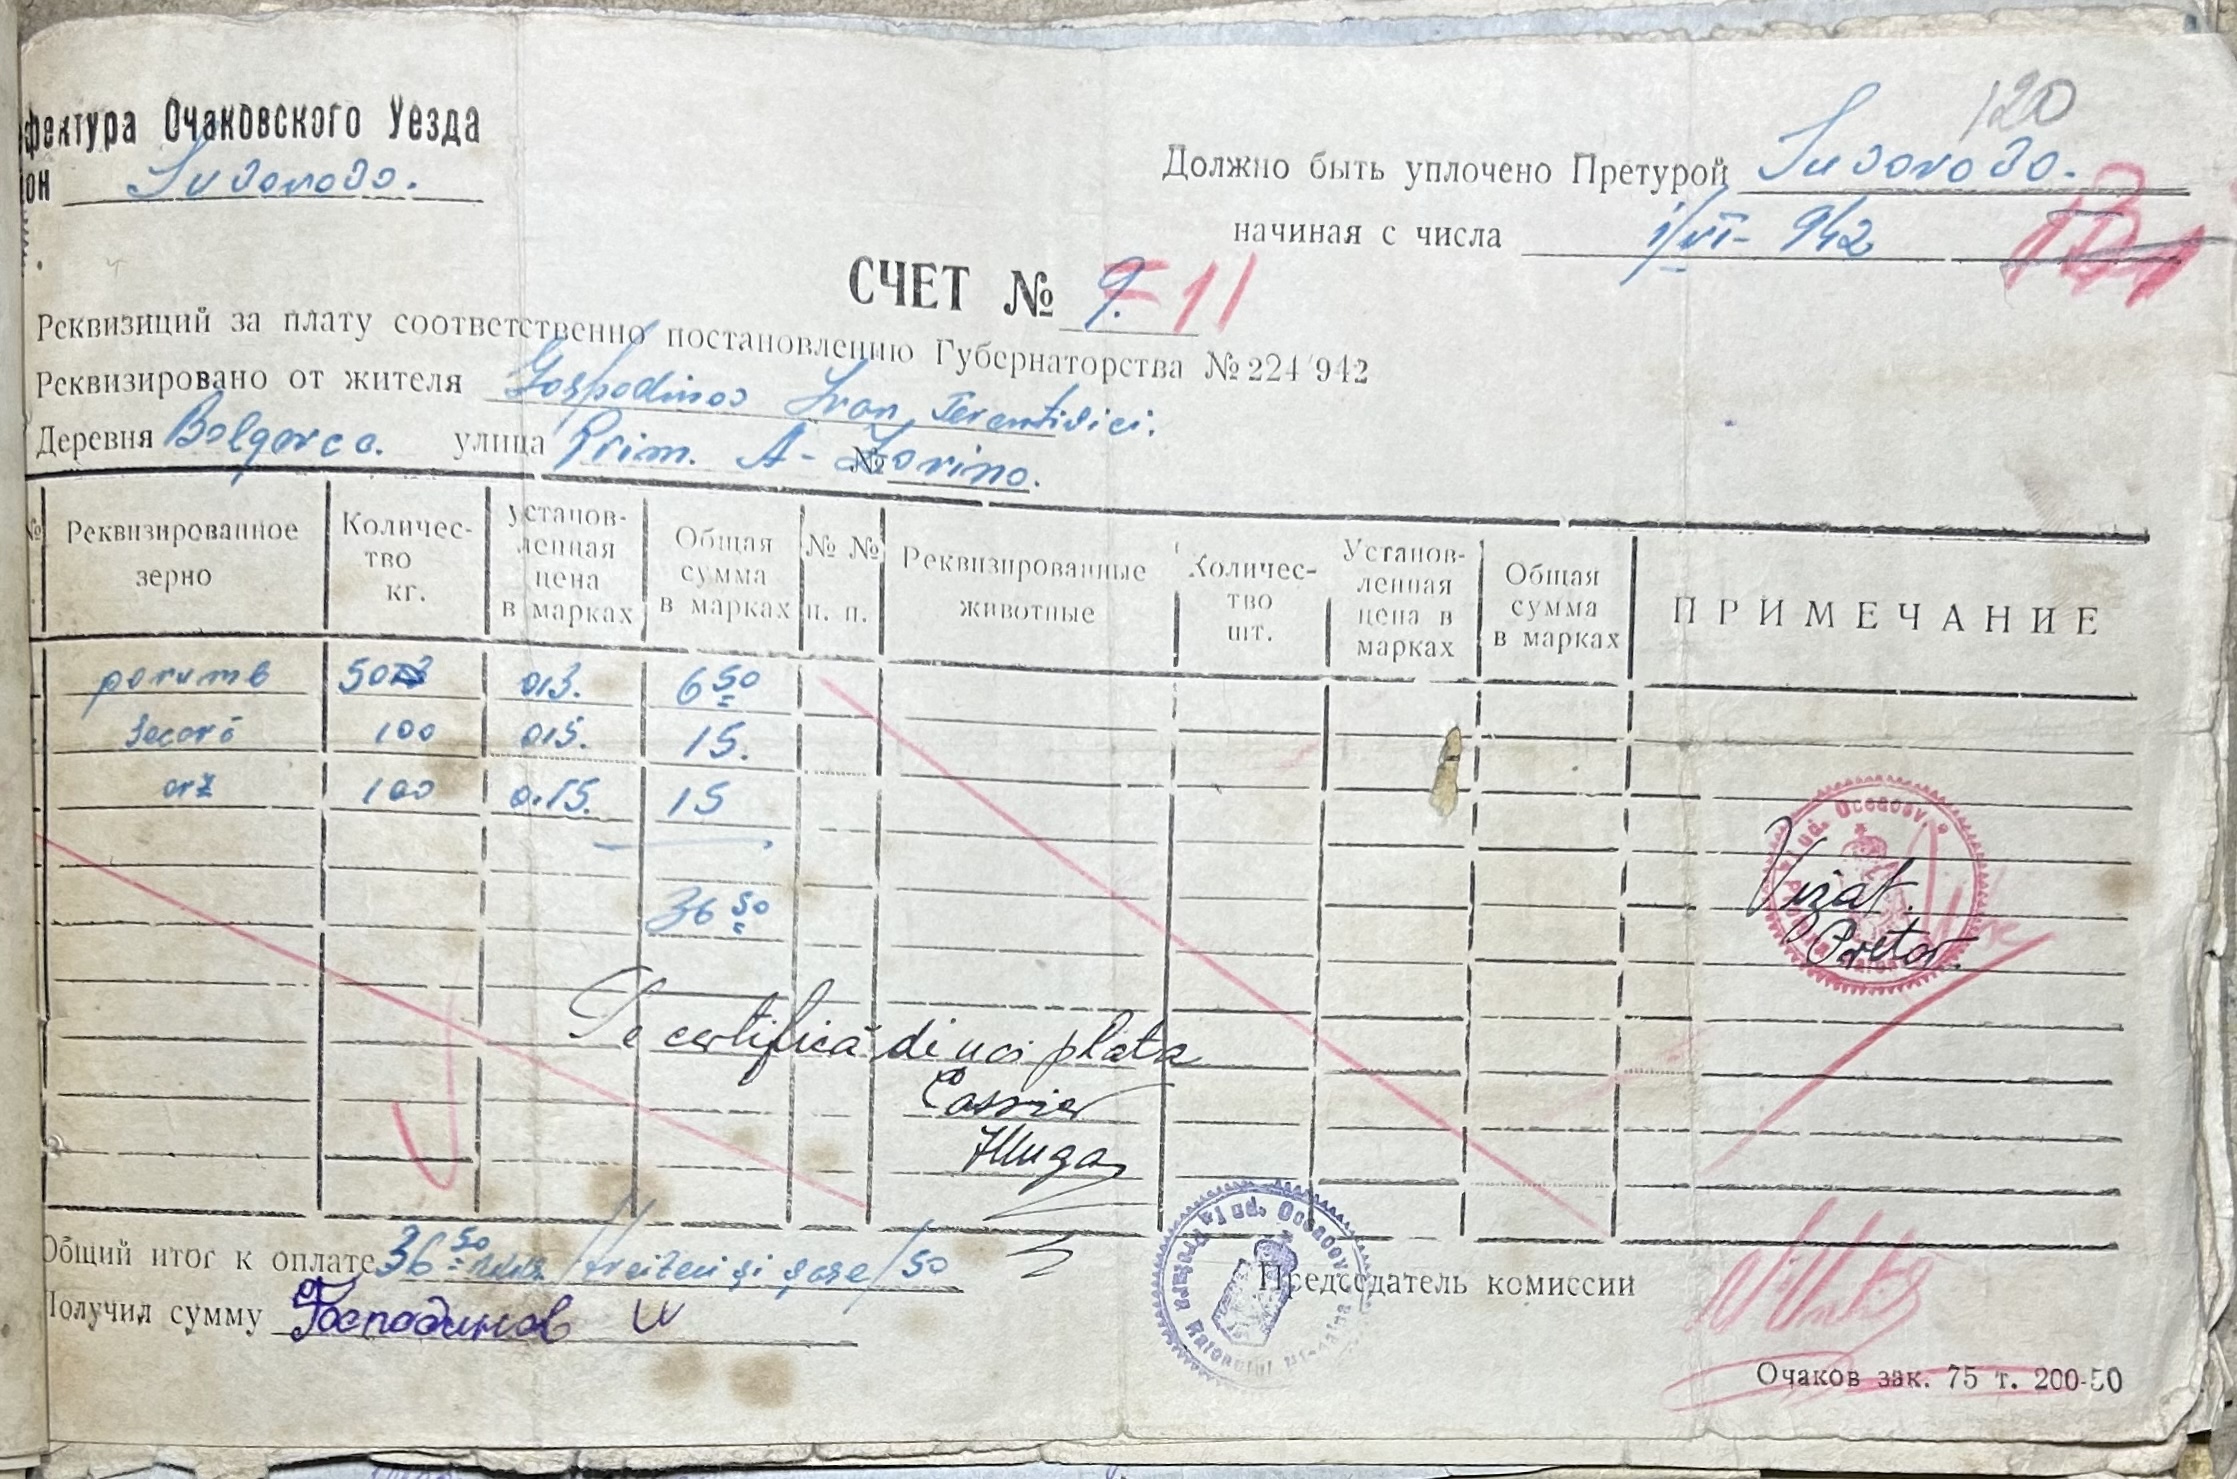 120
фектура Очаковского Уезда
он Suvorovo.
Должно быть уплочено Претурой Suvorovo.
начиная с числа 1/VI- 942
СЧЕТ № 9. 11
Реквизиций за плату соответственно постановлению Губернаторства № 224/942
Реквизировано от жителя Gospodinov Ivan Terentivici.
Деревня Bolgarca. улица Prim. A- № Zorino.
№ Реквизированное зерно Количество кг. установленная цена в марках Общая сумма в марках №№ п. п. Реквизированные животные Количество шт. Установленная цена в марках Общая сумма в марках ПРИМЕЧАНИЕ
porumb 50 013. 6 50
Secară 100 015. 15.
orz 100 0.15. 15
36 50
Vizat.
Pretor.
Se certifică de noi plata
Cassier
Общий итог к оплате 36 50 /treizeci și șase/50
Получил сумму Господинов И
Председатель комиссии
Очаков зак. 75 т. 200-50